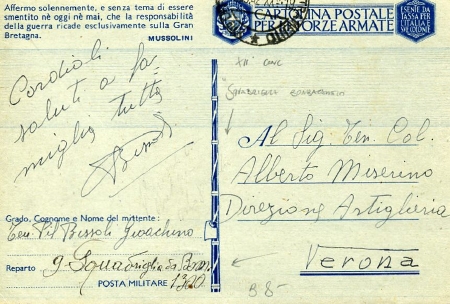 Affermo solennemente, e senza tema di essere
smentito nè oggi nè mai, che la responsabilità
della guerra ricade esclusivamente sulla Gran
Bretagna.
MUSSOLINI
CARTOLINA POSTALE
PER LE FORZE ARMATE
ESENTE DA
TASSA PER
L'ITALIA E
SUE COLONIE
Cordiali
saluti a fa
miglia tutta
Bissoli
Grado, Cognome e Nome del mittente:
Ten. Pil. Bissoli Gioachino
Reparto 9ª Squadriglia da Bom.
POSTA MILITARE 1300
Al Sig. Ten. Col.
Alberto Miserino
Direzione Artiglieria
Verona
B 85-